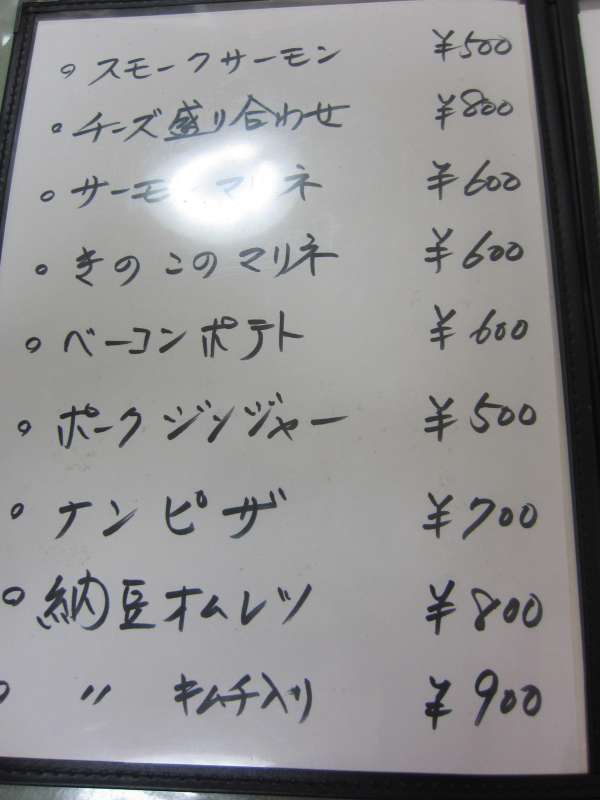 ○ スモークサーモン ¥500
○ チーズ盛り合わせ ¥800
○ サーモンマリネ ¥600
○ きのこのマリネ ¥600
○ ベーコンポテト ¥600
○ ポークジンジャー ¥500
○ ナンピザ ¥700
○ 納豆オムレツ ¥800
○ 〃 キムチ入り ¥900